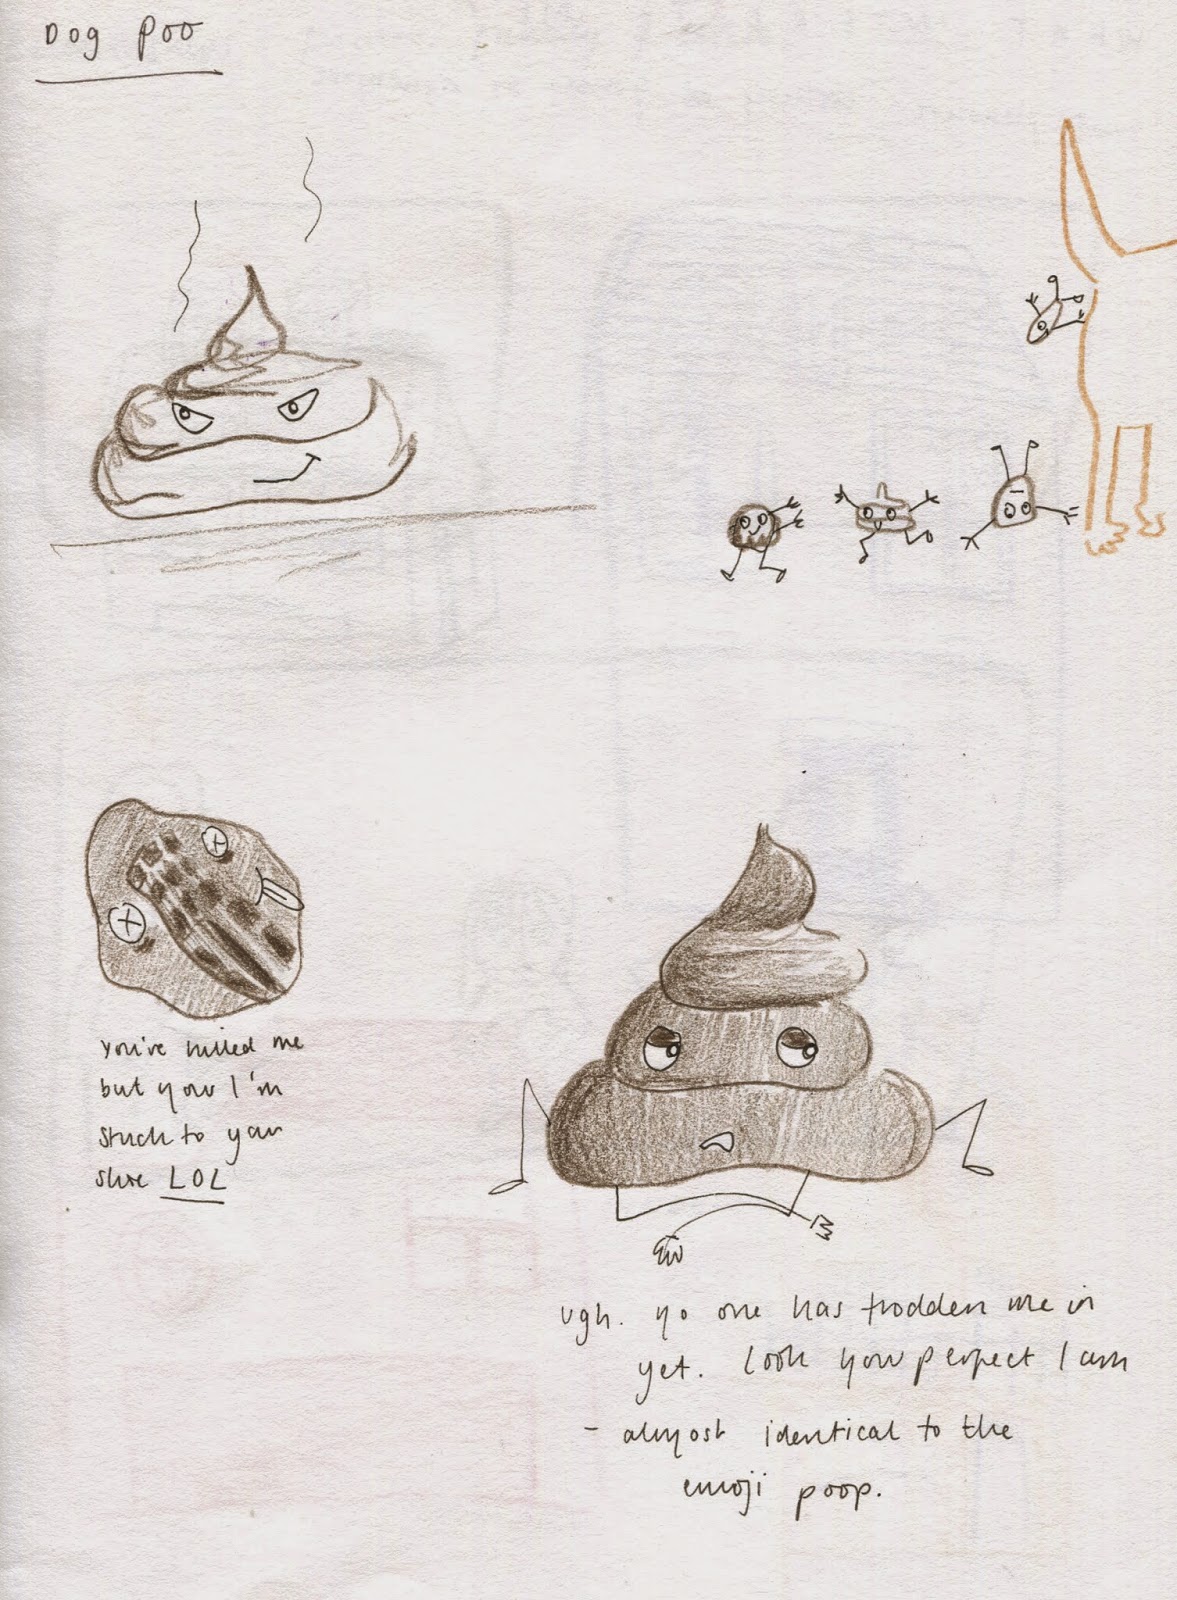 Dog Poo
You've killed me
but now I'm
stuck to your
shoe LOL
ugh. no one has trodden me in
yet. look how perfect I am
- almost identical to the
emoji poop.